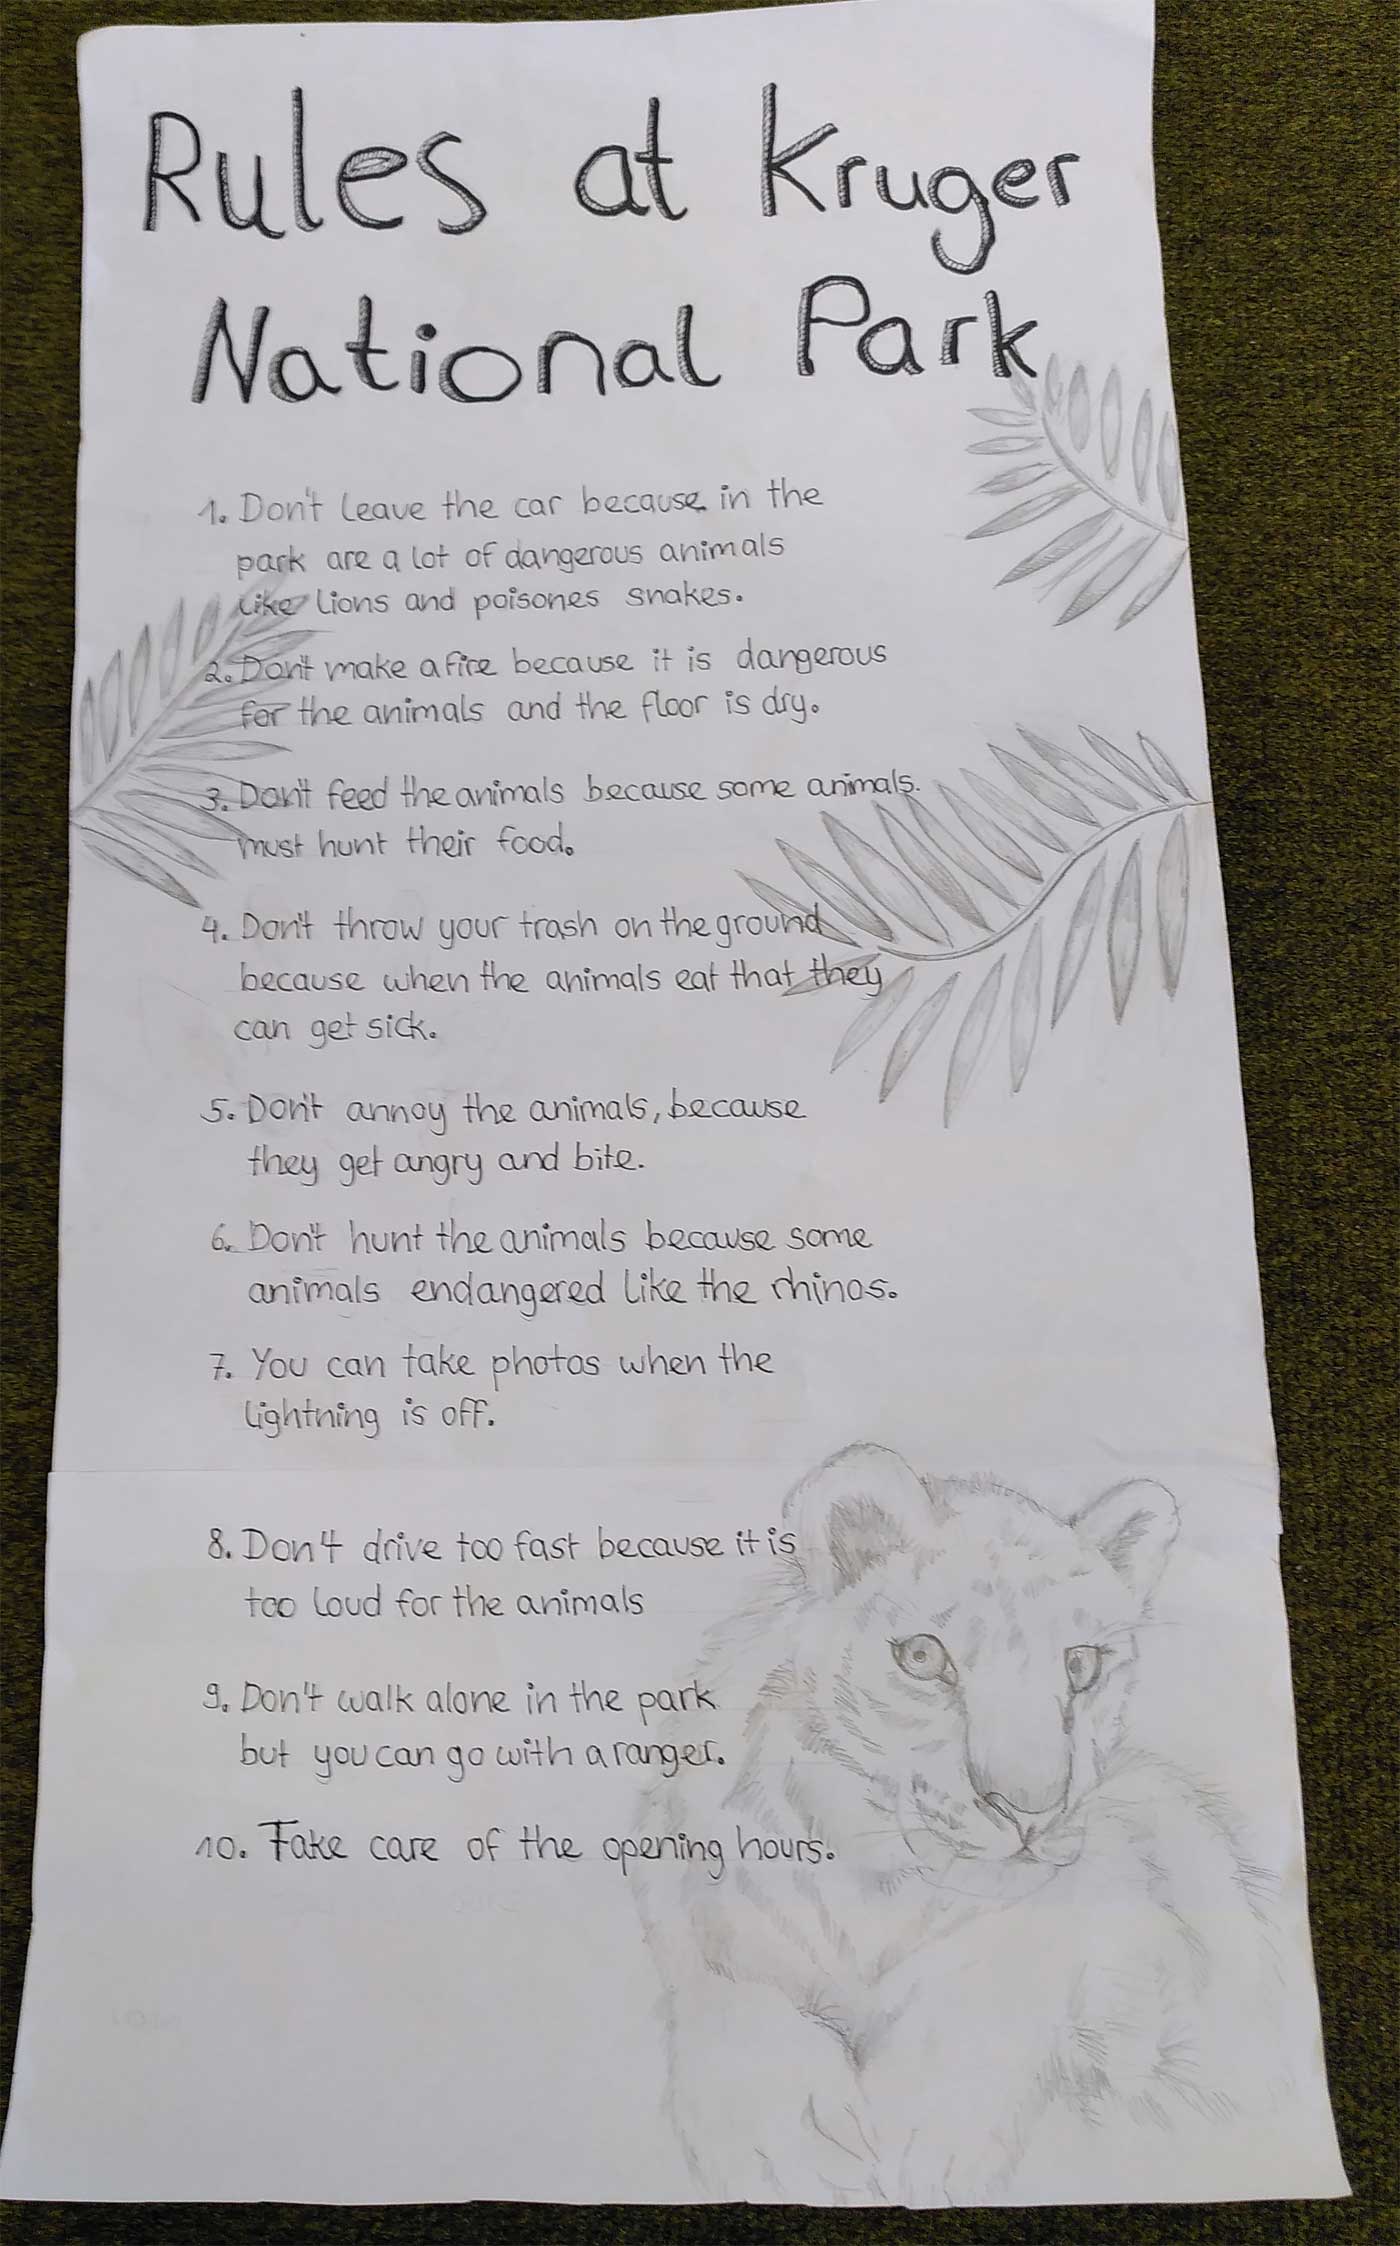 Rules at Kruger
National Park
1. Don't leave the car because in the
park are a lot of dangerous animals
like lions and poisones snakes.
2. Don't make a fire because it is dangerous
for the animals and the floor is dry.
3. Don't feed the animals because some animals.
must hunt their food.
4. Don't throw your trash on the ground
because when the animals eat that they
can get sick.
5. Don't annoy the animals, because
they get angry and bite.
6. Don't hunt the animals because some
animals endangered like the rhinos.
7. You can take photos when the
lightning is off.
8. Don't drive too fast because it is
too loud for the animals
9. Don't walk alone in the park
but you can go with a ranger.
10. Take care of the opening hours.